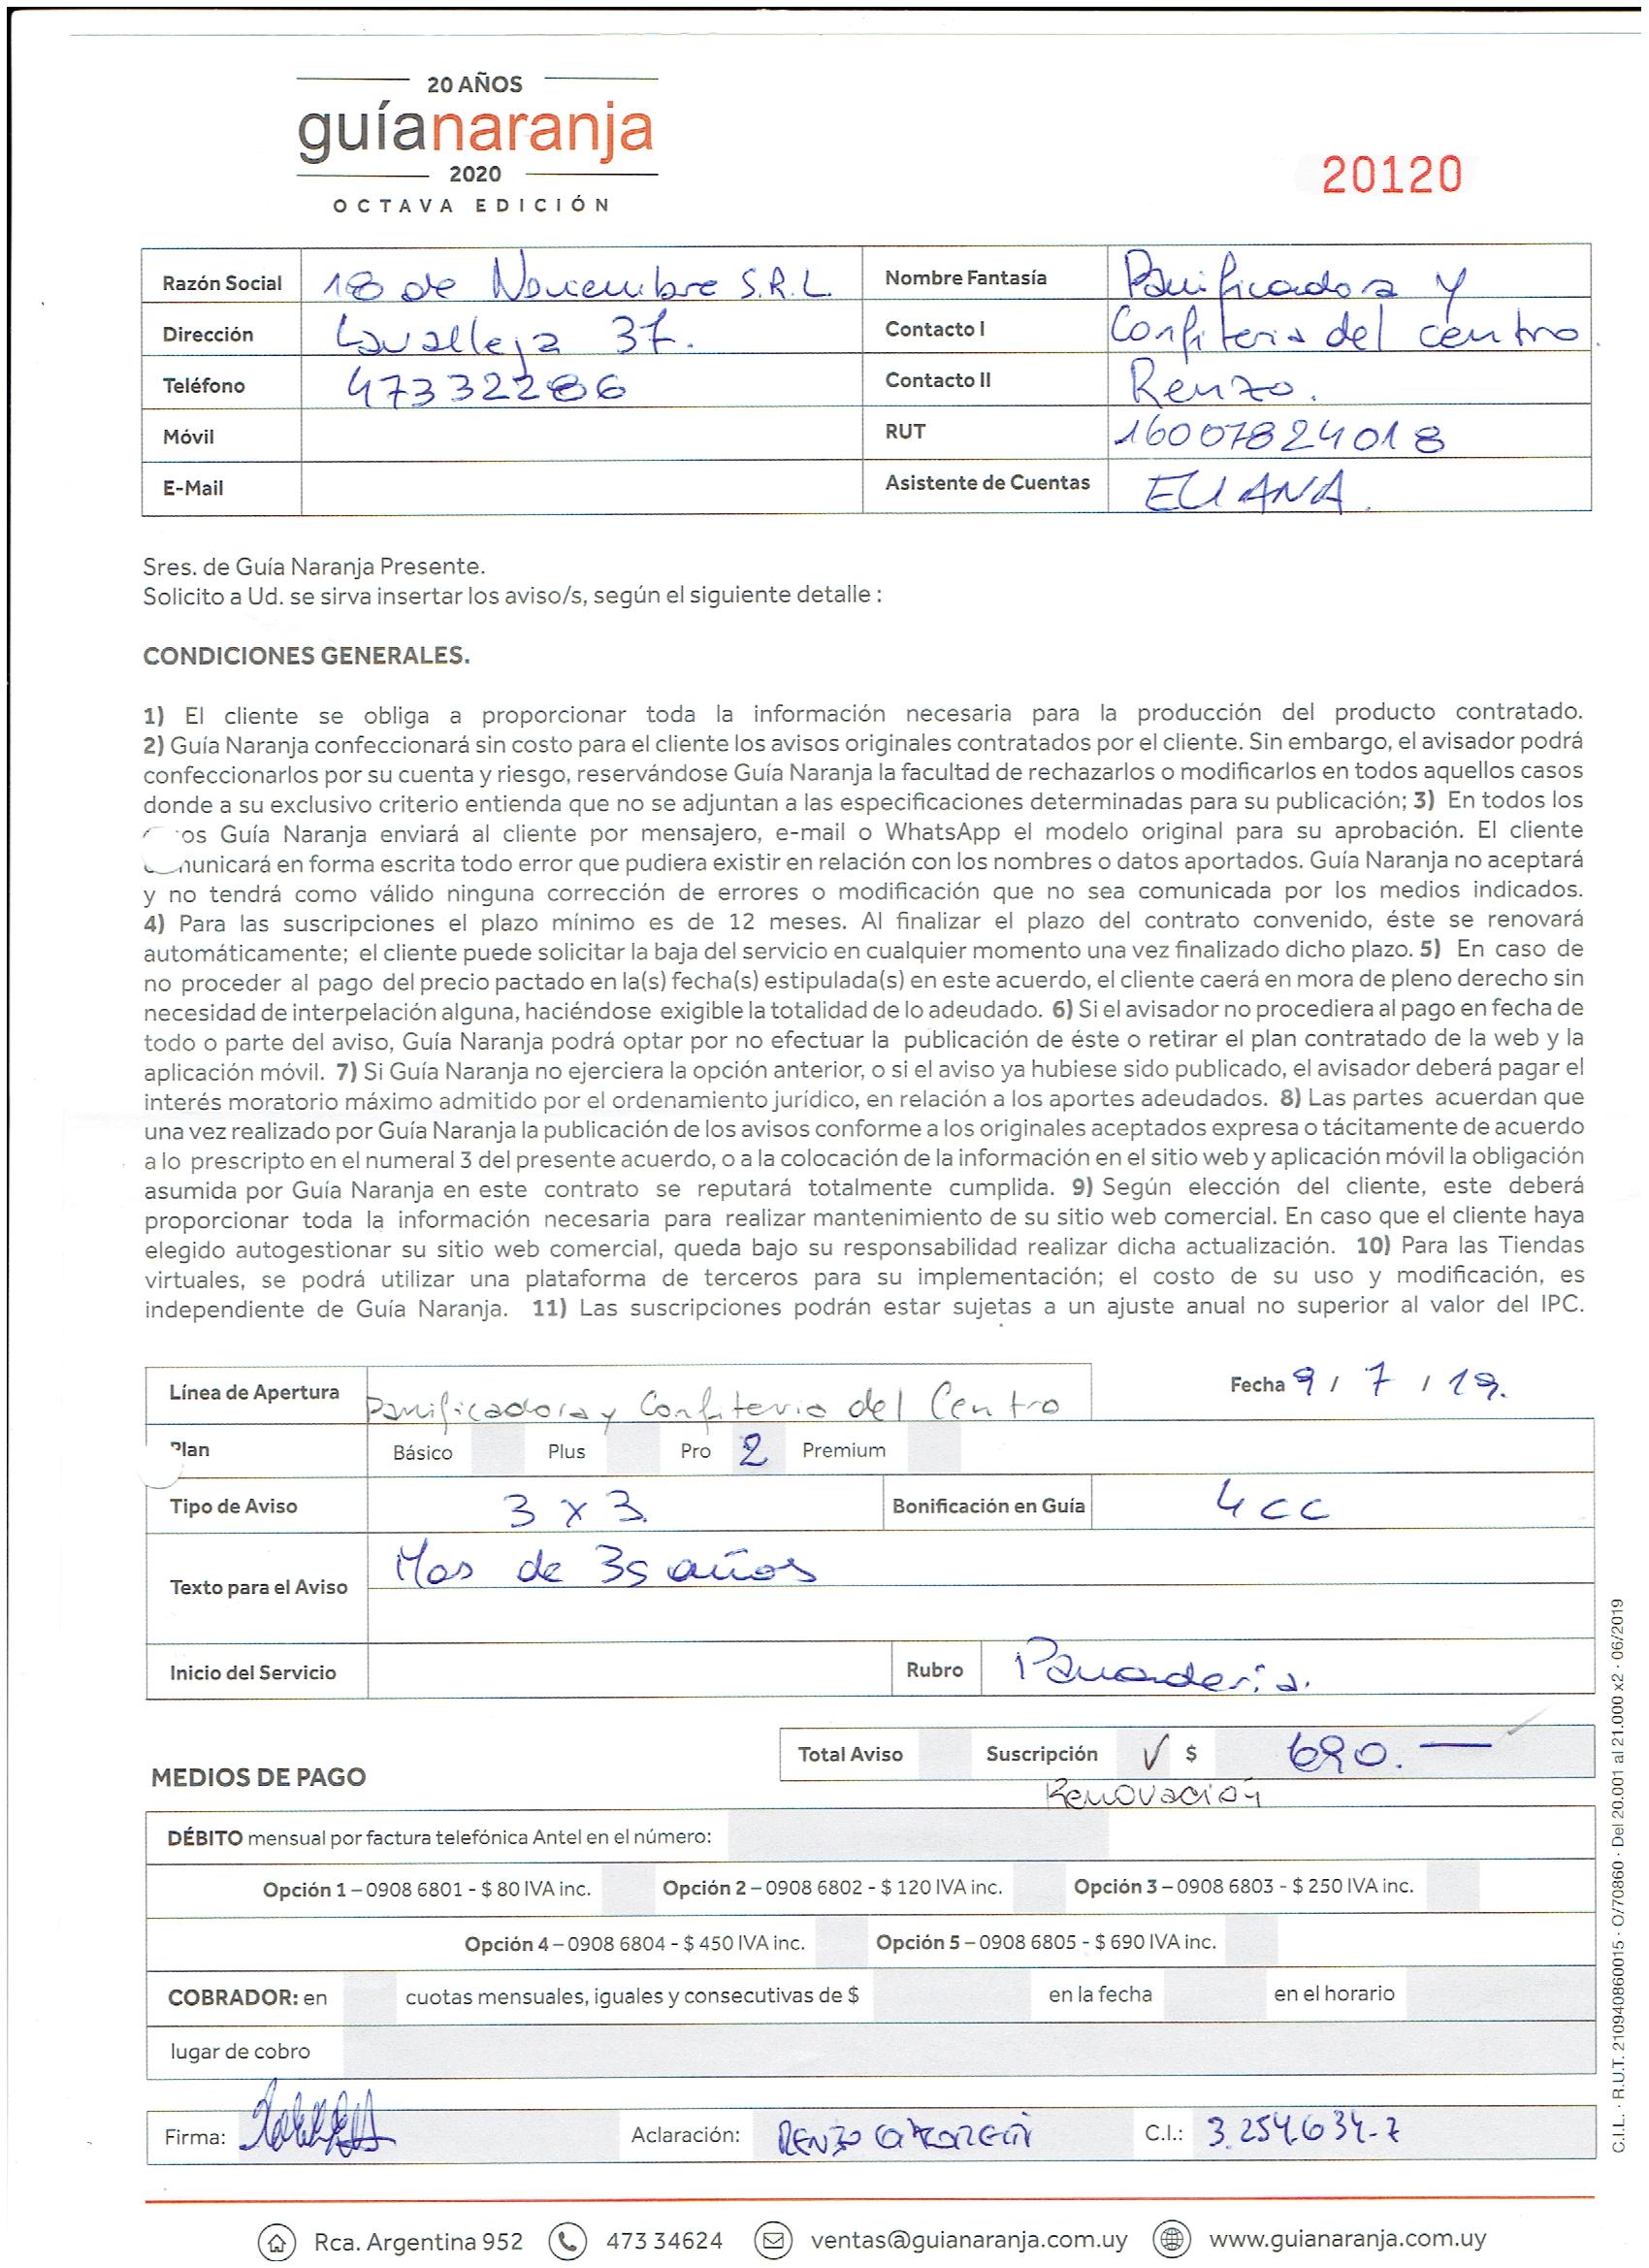 20 AÑOS
guíanaranja
2020
OCTAVA EDICIÓN
20120
Razón Social 18 de Noviembre S.R.L. Nombre Fantasía Panificadora y
Dirección Lavalleja 37. Contacto I Confiteria del centro.
Teléfono 47332286 Contacto II Renzo.
Móvil RUT 16007824018
E-Mail Asistente de Cuentas ELIANA.
Sres. de Guía Naranja Presente.
Solicito a Ud. se sirva insertar los aviso/s, según el siguiente detalle :
CONDICIONES GENERALES.
1) El cliente se obliga a proporcionar toda la información necesaria para la producción del producto contratado.
2) Guía Naranja confeccionará sin costo para el cliente los avisos originales contratados por el cliente. Sin embargo, el avisador podrá
confeccionarlos por su cuenta y riesgo, reservándose Guía Naranja la facultad de rechazarlos o modificarlos en todos aquellos casos
donde a su exclusivo criterio entienda que no se adjuntan a las especificaciones determinadas para su publicación; 3) En todos los
os Guía Naranja enviará al cliente por mensajero, e-mail o WhatsApp el modelo original para su aprobación. El cliente
municará en forma escrita todo error que pudiera existir en relación con los nombres o datos aportados. Guía Naranja no aceptará
y no tendrá como válido ninguna corrección de errores o modificación que no sea comunicada por los medios indicados.
4) Para las suscripciones el plazo mínimo es de 12 meses. Al finalizar el plazo del contrato convenido, éste se renovará
automáticamente; el cliente puede solicitar la baja del servicio en cualquier momento una vez finalizado dicho plazo. 5) En caso de
no proceder al pago del precio pactado en la(s) fecha(s) estipulada(s) en este acuerdo, el cliente caerá en mora de pleno derecho sin
necesidad de interpelación alguna, haciéndose exigible la totalidad de lo adeudado. 6) Si el avisador no procediera al pago en fecha de
todo o parte del aviso, Guía Naranja podrá optar por no efectuar la publicación de éste o retirar el plan contratado de la web y la
aplicación móvil. 7) Si Guía Naranja no ejerciera la opción anterior, o si el aviso ya hubiese sido publicado, el avisador deberá pagar el
interés moratorio máximo admitido por el ordenamiento jurídico, en relación a los aportes adeudados. 8) Las partes acuerdan que
una vez realizado por Guía Naranja la publicación de los avisos conforme a los originales aceptados expresa o tácitamente de acuerdo
a lo prescripto en el numeral 3 del presente acuerdo, o a la colocación de la información en el sitio web y aplicación móvil la obligación
asumida por Guía Naranja en este contrato se reputará totalmente cumplida. 9) Según elección del cliente, este deberá
proporcionar toda la información necesaria para realizar mantenimiento de su sitio web comercial. En caso que el cliente haya
elegido autogestionar su sitio web comercial, queda bajo su responsabilidad realizar dicha actualización. 10) Para las Tiendas
virtuales, se podrá utilizar una plataforma de terceros para su implementación; el costo de su uso y modificación, es
independiente de Guía Naranja. 11) Las suscripciones podrán estar sujetas a un ajuste anual no superior al valor del IPC.
Línea de Apertura Panificadora y Confiteria del Centro Fecha 9 / 7 / 19.
Plan Básico Plus Pro 2 Premium
Tipo de Aviso 3 x 3 Bonificación en Guía 4 cc
Texto para el Aviso Mas de 35 años
Inicio del Servicio Rubro Panaderia.
Total Aviso Suscripción √ $ 690.—
MEDIOS DE PAGO
Renovación
DÉBITO mensual por factura telefónica Antel en el número:
Opción 1 – 0908 6801 - $ 80 IVA inc. Opción 2 – 0908 6802 - $ 120 IVA inc. Opción 3 – 0908 6803 - $ 250 IVA inc.
Opción 4 – 0908 6804 - $ 450 IVA inc. Opción 5 – 0908 6805 - $ 690 IVA inc.
COBRADOR: en cuotas mensuales, iguales y consecutivas de $ en la fecha en el horario
lugar de cobro
Firma: Aclaración: RENZO C.I.: 3.254.634-7
Rca. Argentina 952 473 34624 ventas@guianaranja.com.uy www.guianaranja.com.uy
C.I.L. · R.U.T. 210940860015 · O/70860 · Del 20.001 al 21.000 x2 · 06/2019